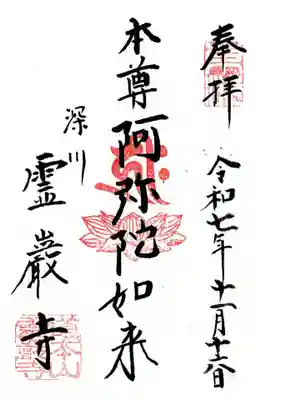 奉拝
令和七年十一月
本尊阿弥陀如来
深川
霊巌寺